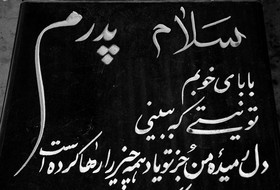 سلام پدرم
بابای خوبم
تو نیستی که ببینی
دل رمیده من جز تو یاد همه چیز را رها کرده است